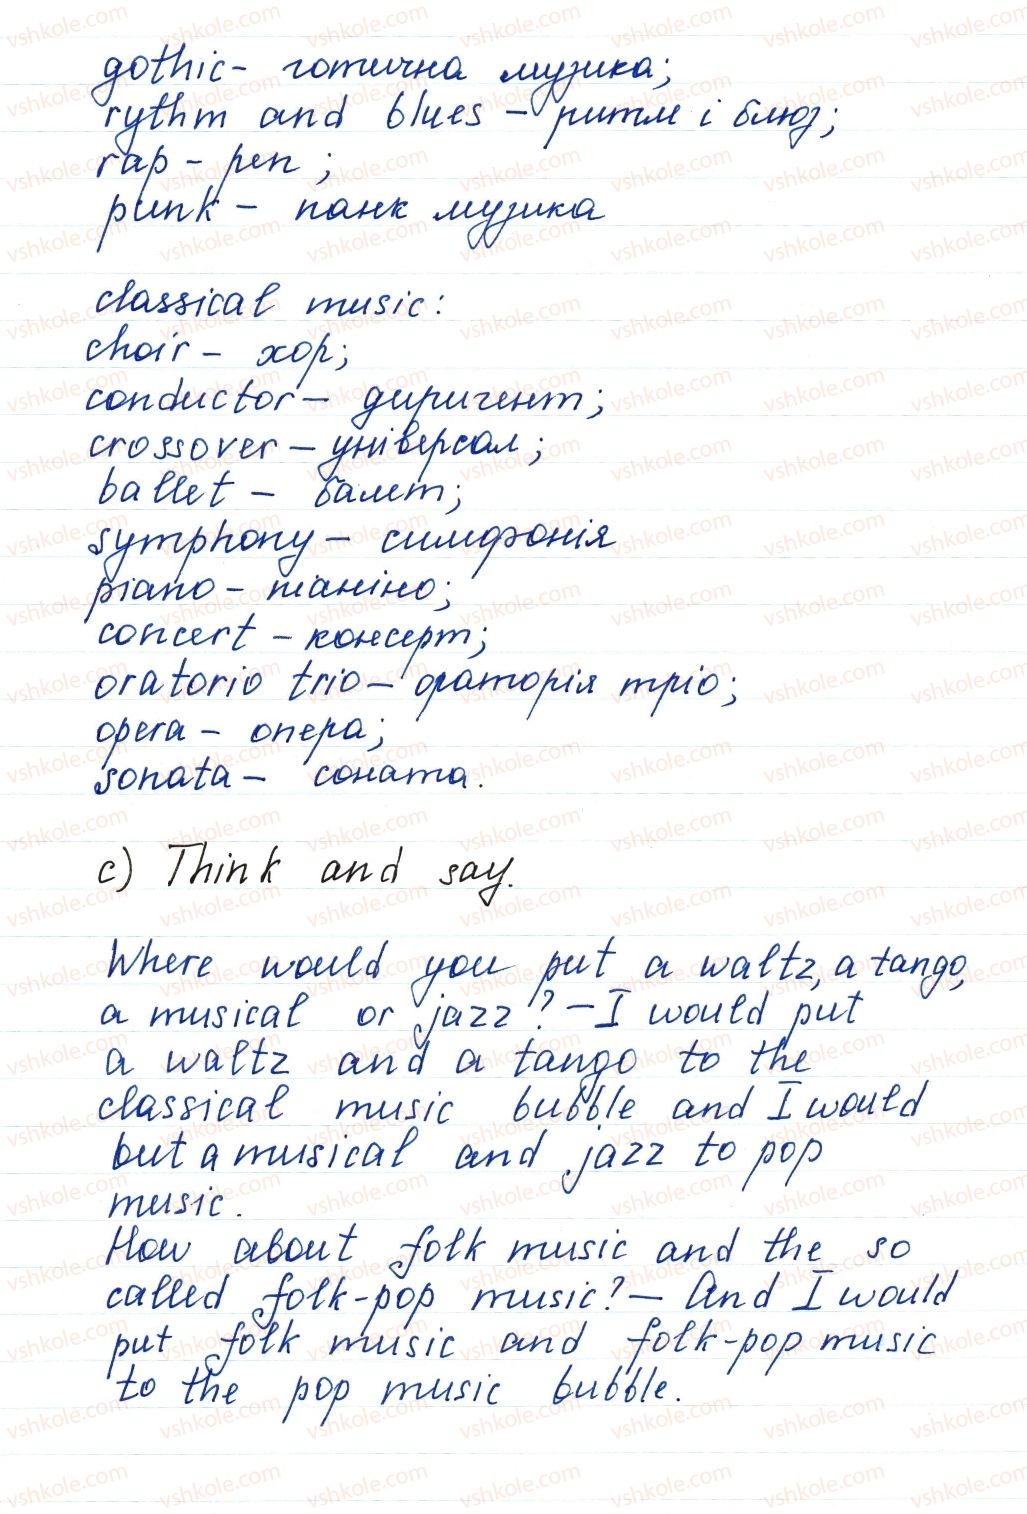 gothic - готична музика;
rythm and blues - ритм і блюз;
rap - реп;
punk - панк музика
classical music:
choir - хор;
conductor - диригент;
crossover - універсал;
ballet - балет;
symphony - симфонія
piano - піаніно;
concert - концерт;
oratorio trio - ораторія тріо;
opera - опера;
sonata - соната.
c) Think and say.
Where would you put a waltz, a tango,
a musical or jazz? - I would put
a waltz and a tango to the
classical music bubble and I would
but a musical and jazz to pop
music.
How about folk music and the so
called folk-pop music? - And I would
put folk music and folk-pop music
to the pop music bubble.